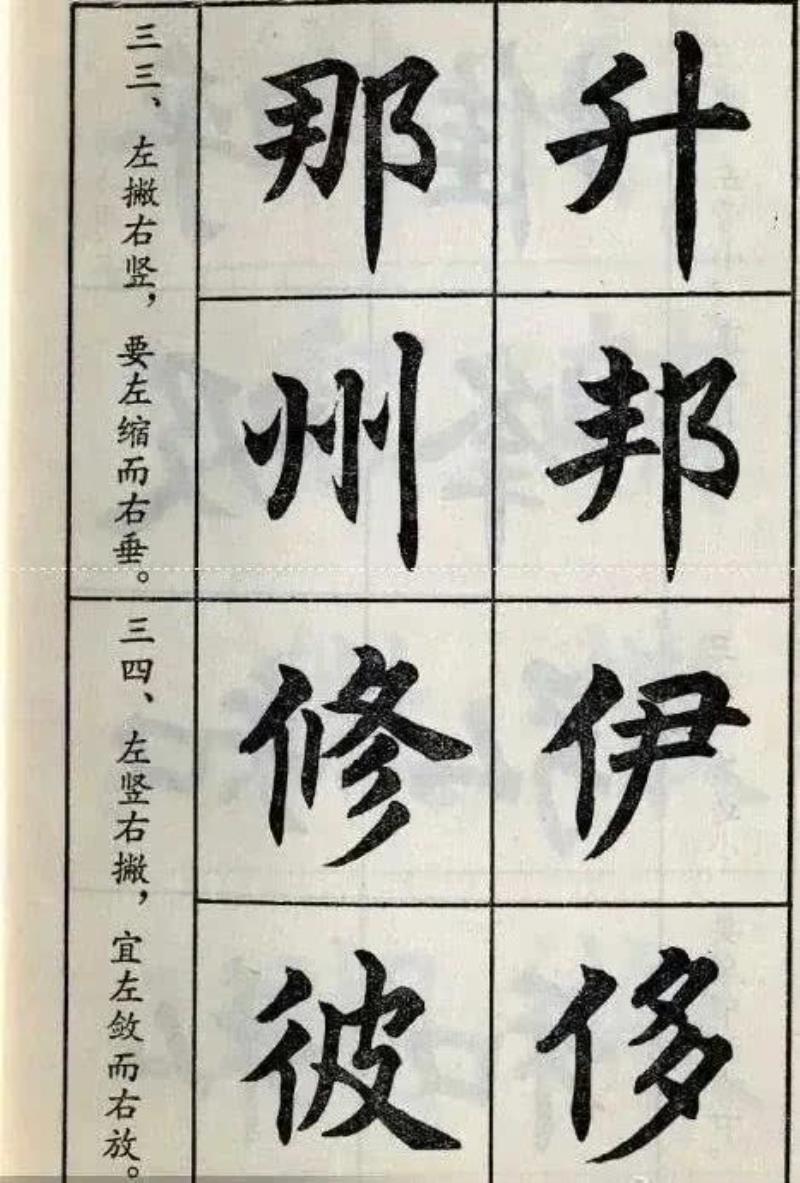 三三、左撇右竖，要左缩而右垂。
升
那
邦
州
三四、左竖右撇，宜左敛而右放。
伊
修
侈
彼